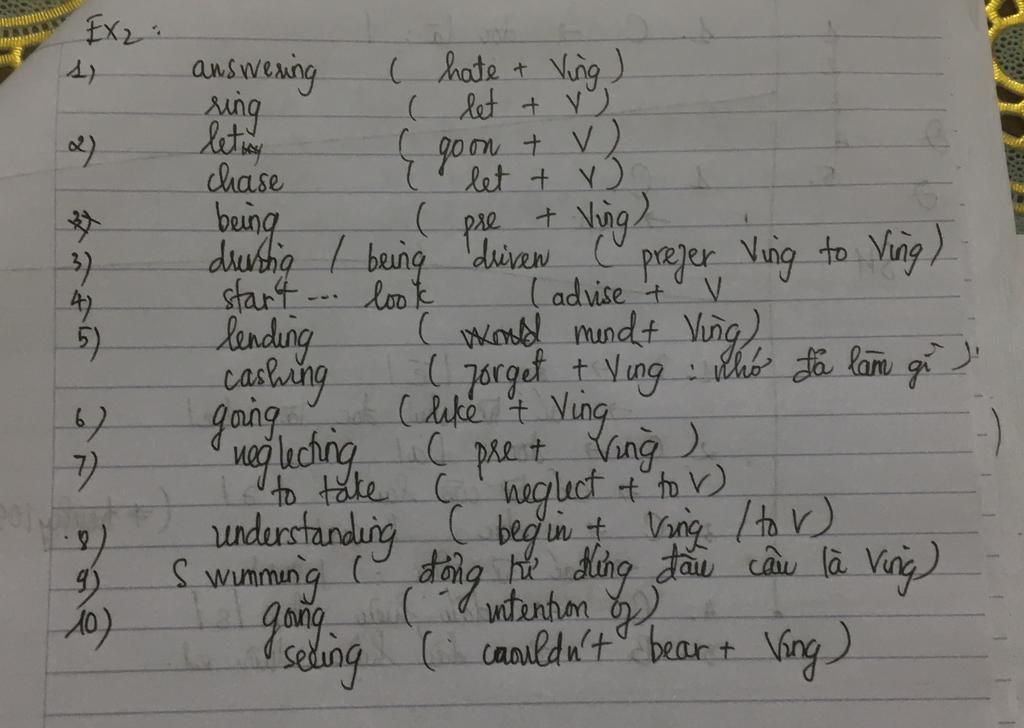 Ex2:
1) answering ( hate + Ving )
ring ( let + V )
2) let ( go on + V )
chase ( let + V )
being ( pre + Ving )
3) driving / being driven ( prefer Ving to Ving )
4) start ... look ( advise + V
5) lending ( would mind + Ving )
cashing ( forget + Ving : nhớ đã làm gì )
6) going ( like + Ving )
7) neglecting ( pre + Ving )
to take ( neglect + to V )
8) understanding ( begin + Ving / to V )
9) Swimming ( động từ đứng đầu câu là Ving )
10) going ( intention of )
seeing ( couldn't bear + Ving )